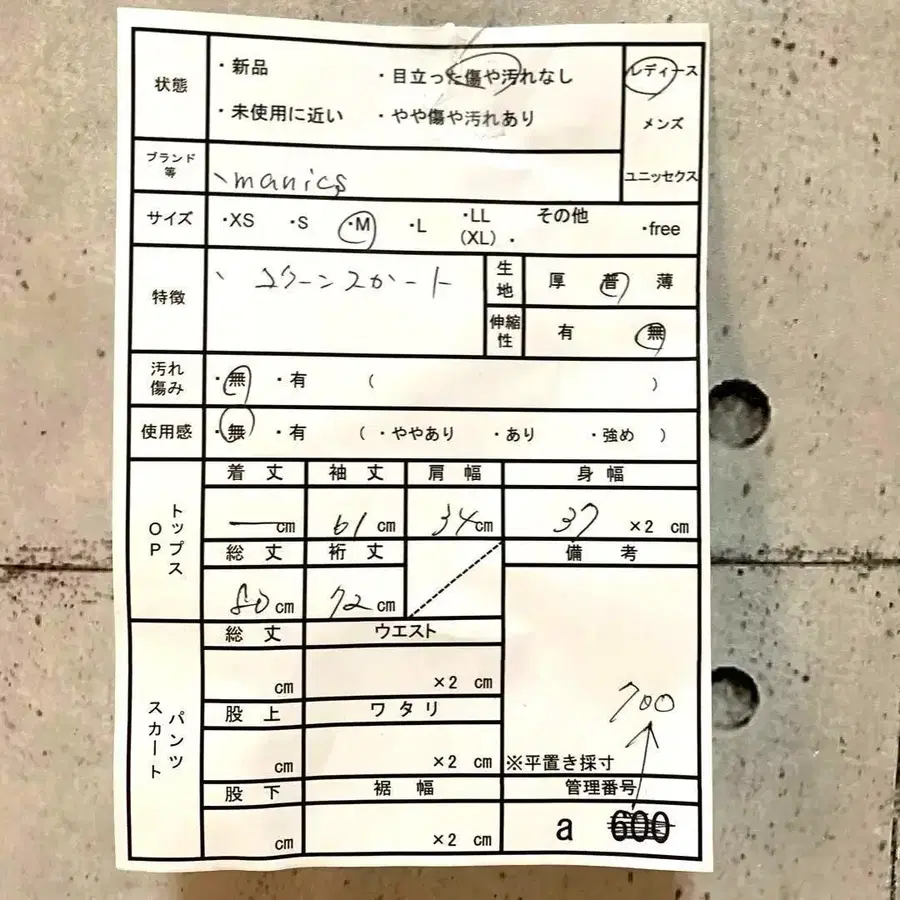 状態
・新品 ・目立った傷や汚れなし
・未使用に近い ・やや傷や汚れあり
レディース
メンズ
ユニッセクス
ブランド等
、manics
サイズ ・XS ・S ・M ・L ・LL (XL) ・ その他 ・free
特徴
生地 厚 普 薄
伸縮性 有 無
汚れ傷み ・無 ・有 ( )
使用感 ・無 ・有 ( ・ややあり ・あり ・強め )
トップス OP
着丈 袖丈 肩幅 身幅
—cm 61 cm 34cm 37 ×2 cm
総丈 裄丈 備考
80cm 72cm
パンツ スカート
総丈 ウエスト
cm ×2 cm
700
股上 ワタリ
cm ×2 cm ※平置き採寸
股下 裾幅 管理番号
cm ×2 cm a 600